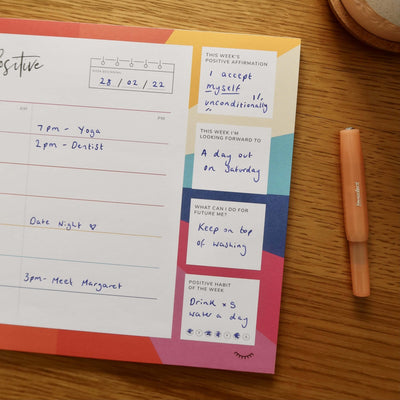 Positive
WEEK BEGINNING
28 / 02 / 22
AM
PM
7pm - Yoga
2pm - Dentist
Date Night ♡
3pm - Meet Margaret
THIS WEEK'S
POSITIVE AFFIRMATION
I accept
myself
unconditionally
THIS WEEK I'M
LOOKING FORWARD TO
A day out
on Saturday
WHAT CAN I DO FOR
FUTURE ME?
Keep on top
of washing
POSITIVE HABIT
OF THE WEEK
Drink x5
water a day